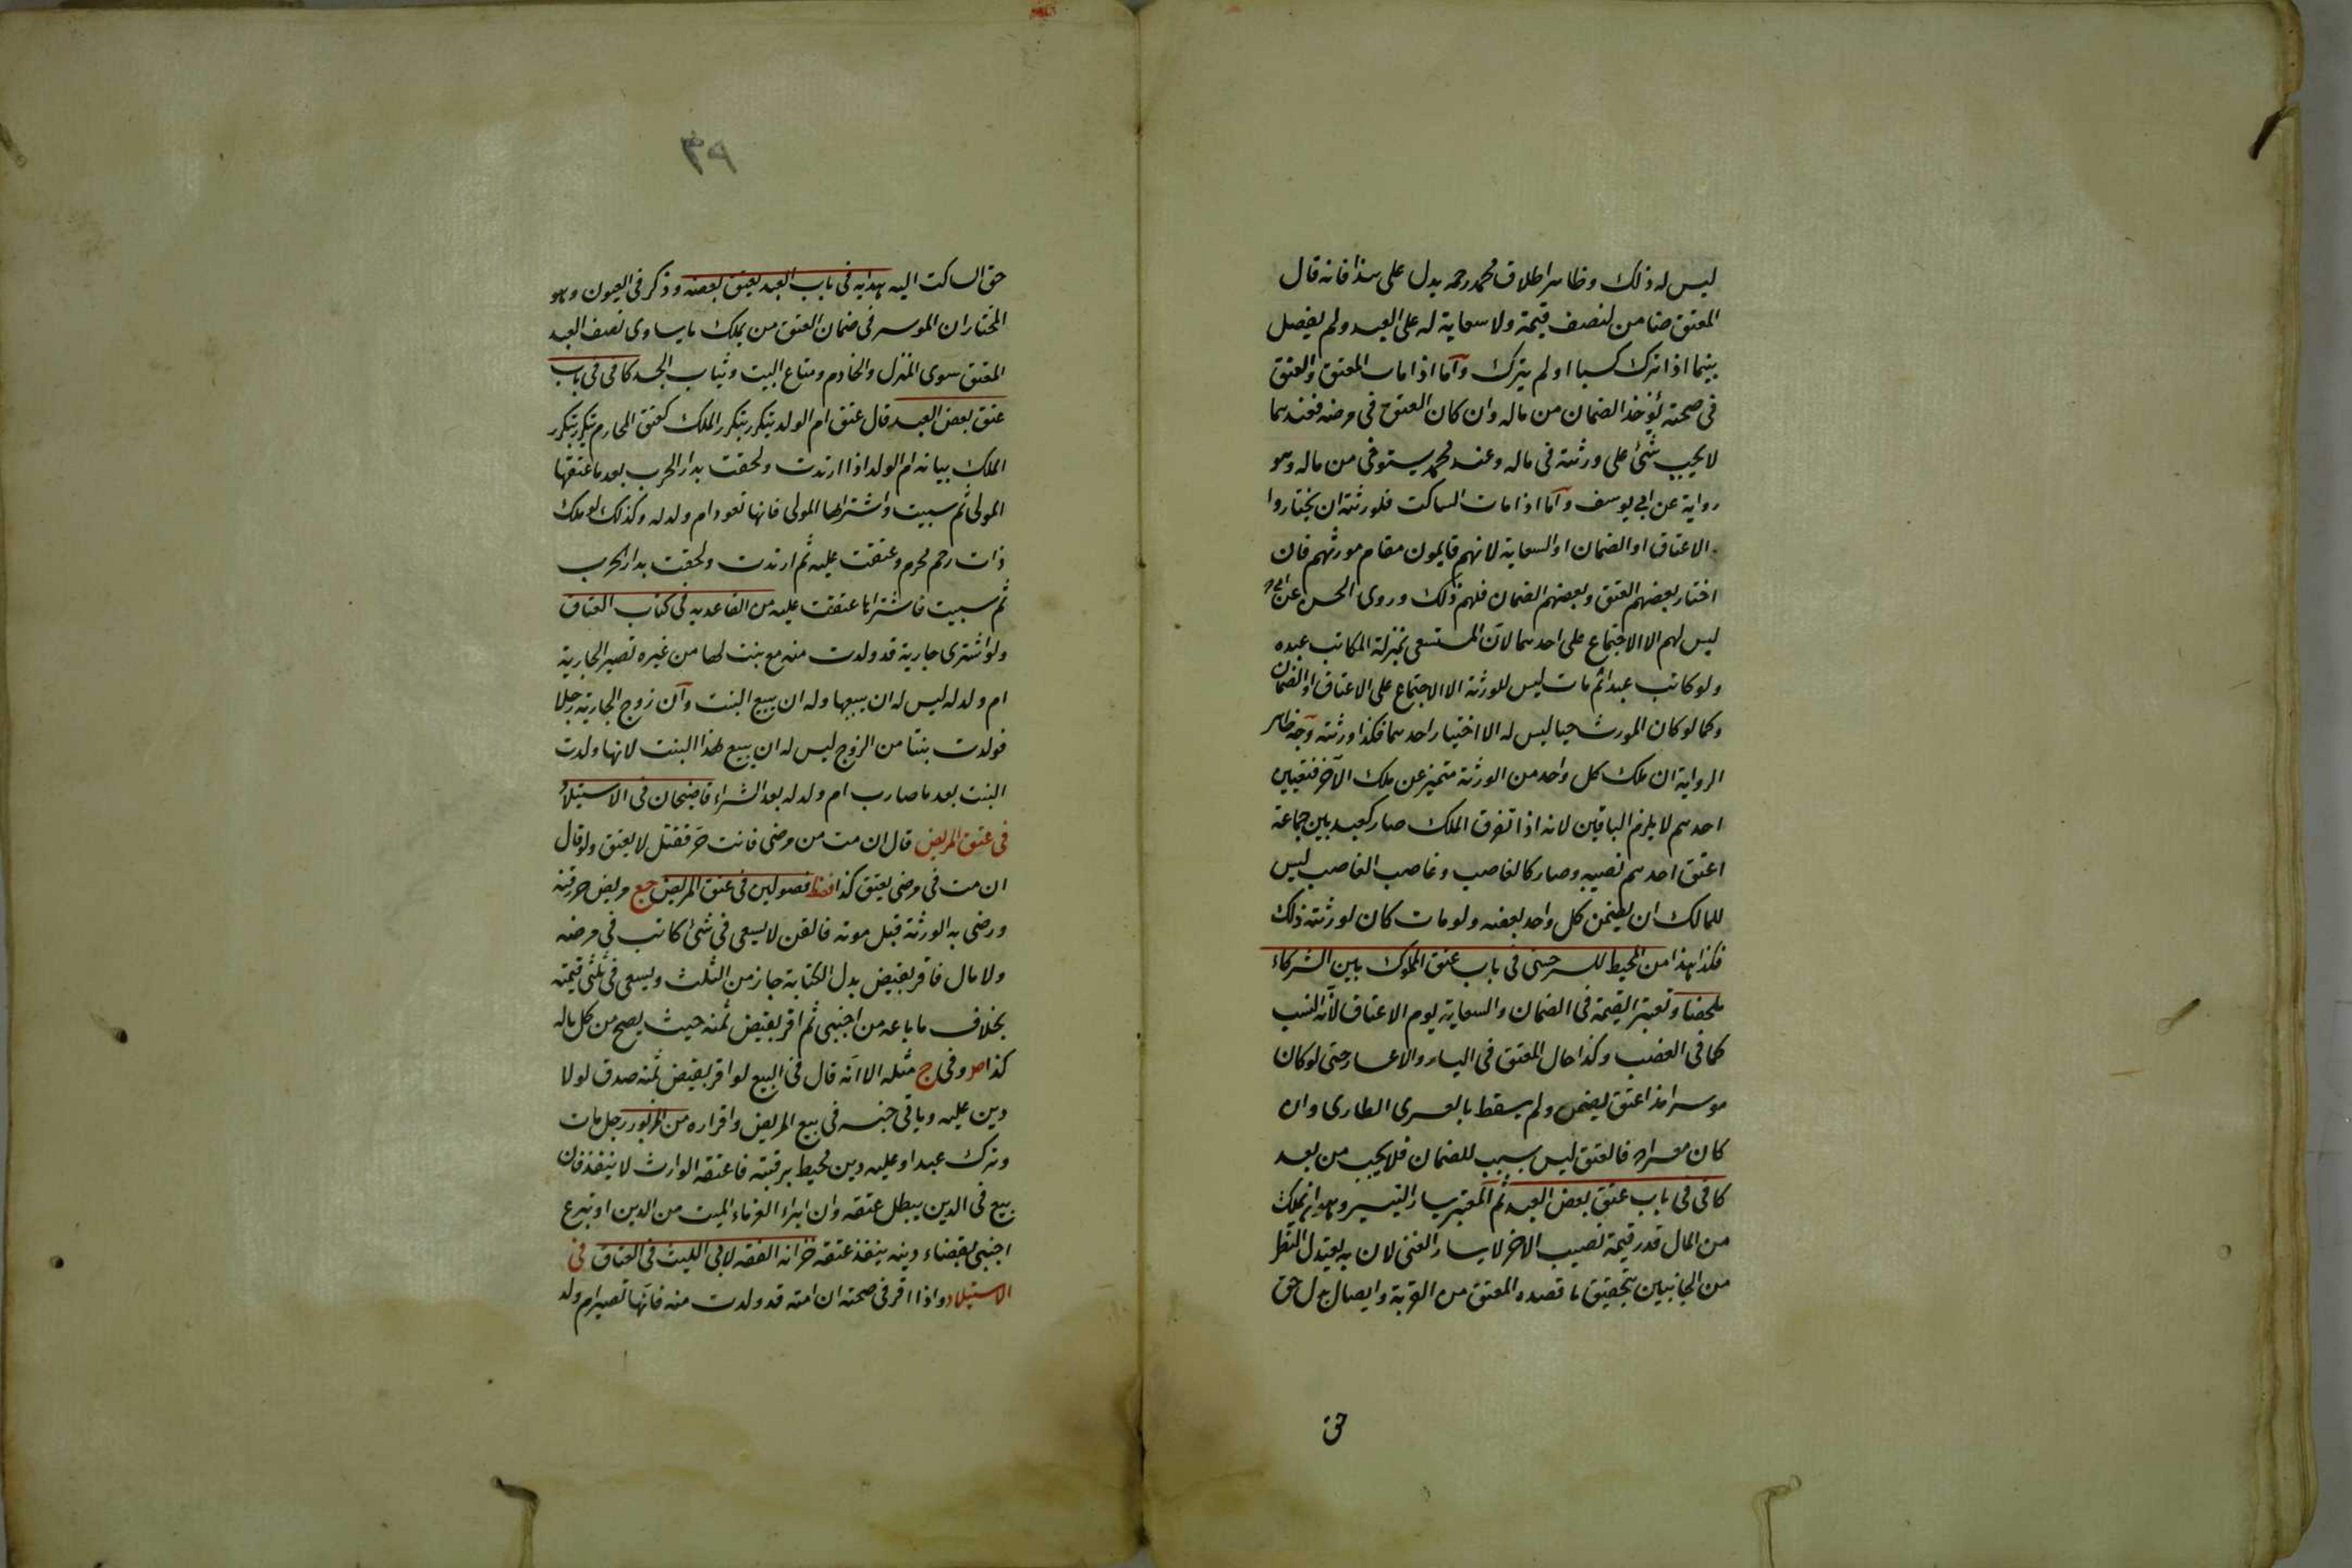 ليس له ذلك وظاهر اطلاق محمد رحمه يدل على هذا فانه قال
المعتق ضامن لنصف قيمته ولا سعاية له على العبد ولم يفصل
بينهما اذا ترك كسبا او لم يترك وآما اذا مات المعتق والعتق
فى صحته يؤخذ الضمان من ماله وان كان العتق فى مرضه فعندهما
لا يجب شئ على ورثته فى ماله وعند محمد يستوفى من ماله وهو
رواية عن ابى يوسف وآما اذا مات الساكت فلورثته ان يختاروا
الاعتاق او الضمان او السعاية لانهم قايمون مقام مورثهم فان
اختار بعضهم العتق وبعضهم الضمان فلهم ذلك وروى الحسن عن ابى ح
ليس لهم الا الاجتماع على احدهما لان المستسعى بمنزلة المكاتب عبده
ولو كاتب عبدا ثم مات ليس للورثة الا الاجتماع على الاعتاق او الضمان
وكما لو كان المورث حيا ليس له الا اختيار احدهما فكذا ورثته وجه ظاهر
الرواية ان ملك كل واحد من الورثة متميز عن ملك الآخر فتعيين
احدهم لا يلزم الباقين لانه اذا تفرق الملك صار كعبد بين جماعة
اعتق احدهم نصيبه وصار كالغاصب وغاصب الغاصب ليس
للمالك ان يضمن كل واحد بعضه ولو مات كان لورثته ذلك
فكذا هذا من المحيط للسرخسى فى باب عتق المملوك بين الشركاء
ملخصا وتعتبر القيمة فى الضمان والسعاية يوم الاعتاق لانه السبب
كما فى الغصب وكذا حال المعتق فى اليسار والاعسار حتى لو كان
موسرا مذ اعتق يضمن ولم يسقط بالعسرى الطارى وان
كان معسرا فالعتق ليس بسبب للضمان فلا يجب من بعد
كافى فى باب عتق بعض العبد ثم المعتبر يسار التيسير وهو ان يملك
من المال قدر قيمة نصيب الاخر لا يسار الغنى لان به يعتدل النظر
من الجانبين بتحقيق ما قصده المعتق من القربة وايصال بدل حق
حق
٣٩
حق الساكت اليه هدايه فى باب العبد يعتق بعضه وذكر فى العيون وهو
المختار ان الموسر فى ضمان العتق من يملك ما يساوى نصف العبد
المعتق سوى المنزل والخادم ومتاع البيت وثياب الجسد كافى فى باب
عتق بعض العبد قال عتق ام الولد يتكرر بتكرر الملك كعتق المحارم يتكرر بتكرر
الملك بيانه ام الولد اذا ارتدت ولحقت بدار الحرب بعد ما عتقها
المولى ثم سبيت واشتراها المولى فانها تعود ام ولد له وكذلك لو ملك
ذات رحم محرم وعتقت عليه ثم ارتدت ولحقت بدار الحرب
ثم سبيت فاشتراها عتقت عليه من القاعديه فى كتاب العتاق
ولو اشترى جارية قد ولدت منه مع بنت لها من غيره تصير الجارية
ام ولد له ليس له ان يبيعها وله ان يبيع البنت وآن زوج الجارية رجلا
فولدت بنتا من الزوج ليس له ان يبيع هذا البنت لانها ولدت
البنت بعد ما صارت ام ولد له بعد الشراء قاضيخان فى الاستيلاد
فى عتق المريض قال ان مت من مرضى فانت حر فقتل لا يعتق ولو قال
ان مت فى مرضى يعتق كذا فقظ فصولين فى عتق المريض جع مريض حرر قنه
ورضى به الورثة قبل موته فالقن لا يسعى فى شئ كاتب فى مرضه
ولا مال فاقر بقبض بدل الكتابة جاز من الثلث ويسعى فى ثلثى قيمته
بخلاف ما باعه من اجنبى ثم اقر بقبض ثمنه حيث يصح من كل ماله
كذا صر وفى ج مثله الا انه قال فى البيع لو اقر بقبض ثمنه صدق لو لا
دين عليه وباقى جنسه فى بيع المريض واقراره من المزبور رجل مات
وترك عبدا وعليه دين محيط برقبته فاعتقه الوارث لا ينفذ فان
بيع فى الدين يبطل عتقه وان ابراء الغرماء الميت من الدين او تبرع
اجنبى بقضاء دينه ينفذ عتقه خزانه الفقه لابى الليث فى العتاق فى
الاستيلاد واذا اقر فى صحته ان امته قد ولدت منه فانها تصير ام ولد